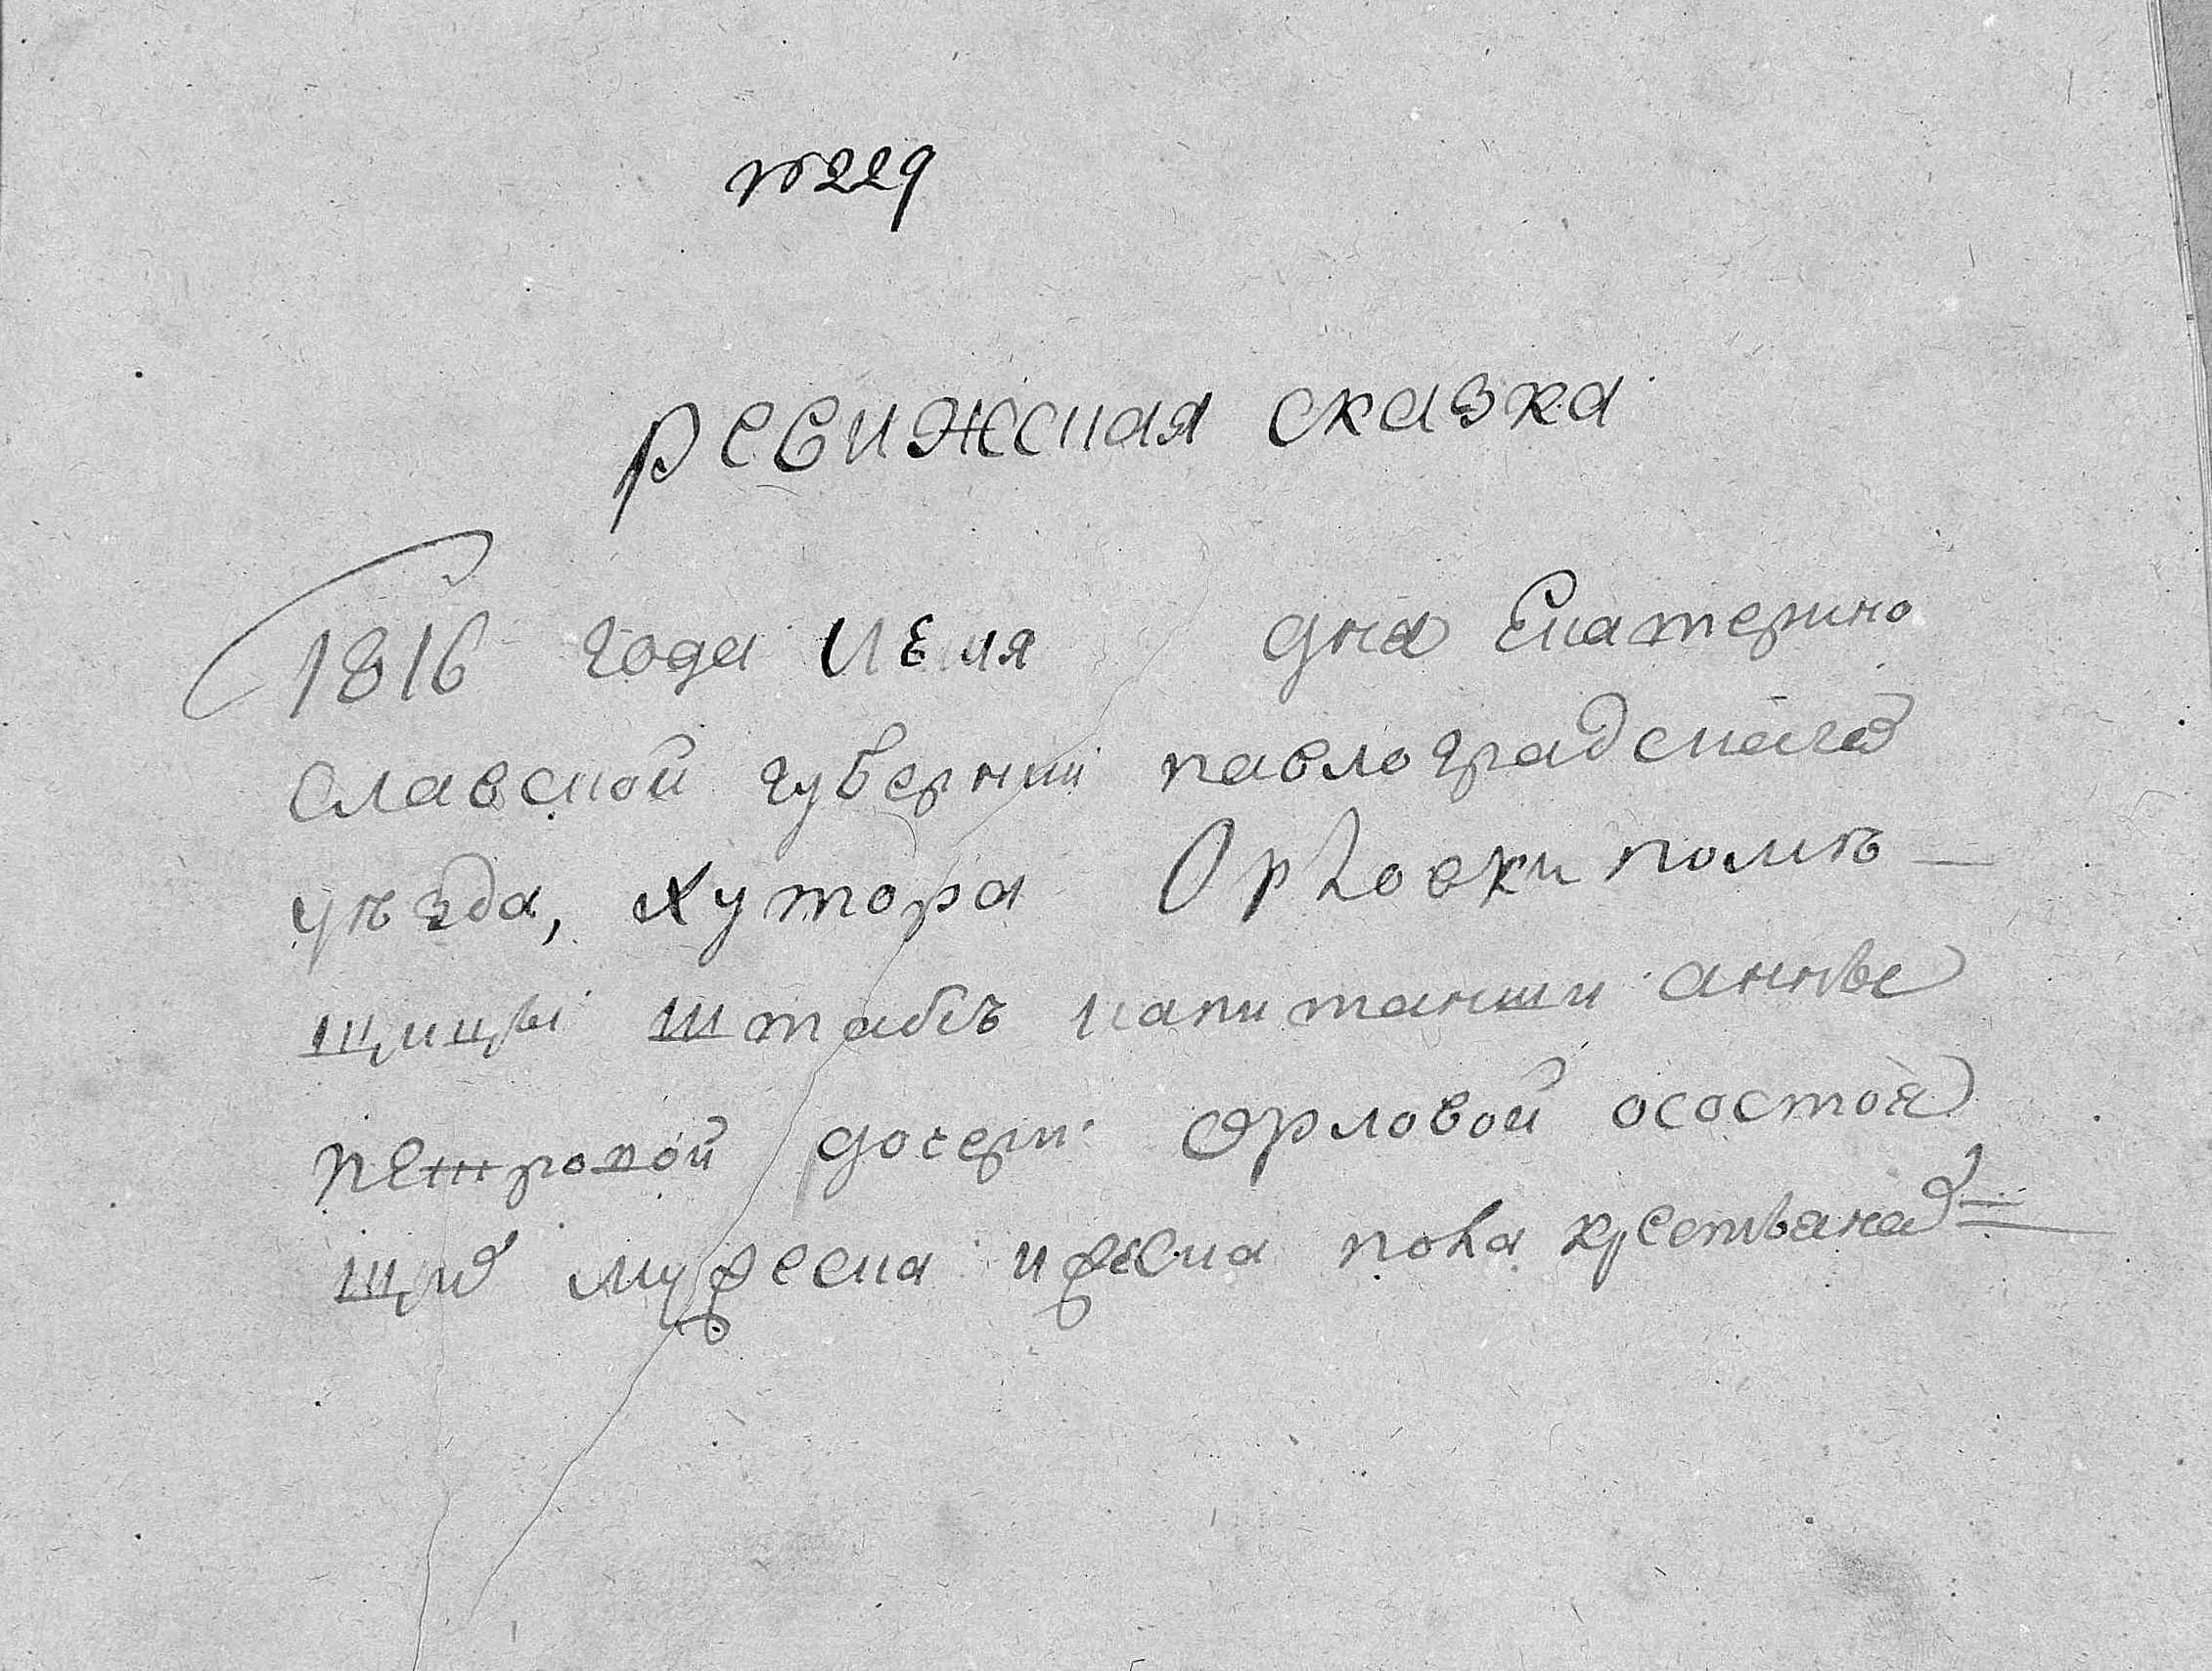 № 229
Ревижская сказка
1816 года июля дня Екатерино
славской губернии павлоградскаго
уѣзда, хутора Орловки помѣ-
щицы штабсъ капитанши анны
петровой дочери Орловой осостоя
щих мужеска и женска пола крестьянах=